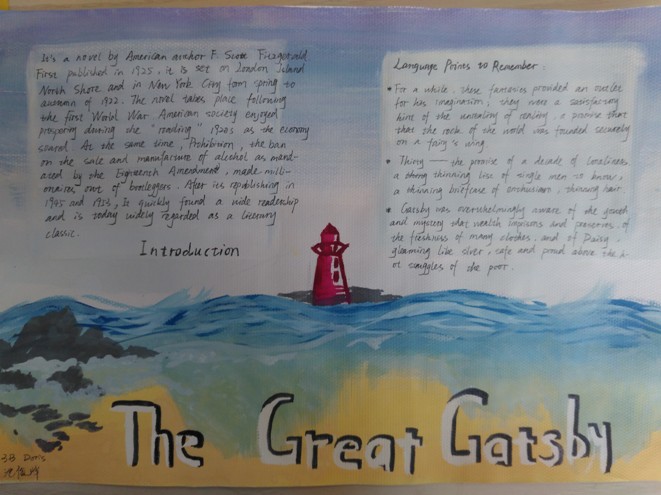 It's a novel by American author F. Scott Fitzgerald.
First published in 1925, it is set on London Island
North Shore and in New York City from spring to
autumn of 1922. The novel takes place following
the first World War. American society enjoyed
prosperity during the "roaring" 1920s as the economy
soared. At the same time, Prohibition, the ban
on the sale and manufacture of alcohol as mand-
ated by the Eighteenth Amendment, made milli-
onaires out of bootleggers. After its republishing in
1945 and 1953, it quickly found a wide readership
and is today widely regarded as a literary
classic.
Introduction
Language Points to Remember.
* For a while, these fantasies provided an outlet
for his imagination; they were a satisfactory
hint of the unreality of reality, a promise that
that the rock of the world was founded securely
on a fairy's wing
* Thirty — the promise of a decade of loneliness,
a thinning list of single men to know,
a thinning briefcase of enthusiasm, thinning hair.
* Gatsby was overwhelmingly aware of the youth
and mystery that wealth imprisons and preserves, of
the freshness of many clothes, and of Daisy,
gleaming like silver, safe and proud above the h
ot struggles of the poor.
The Great Gatsby
Doris